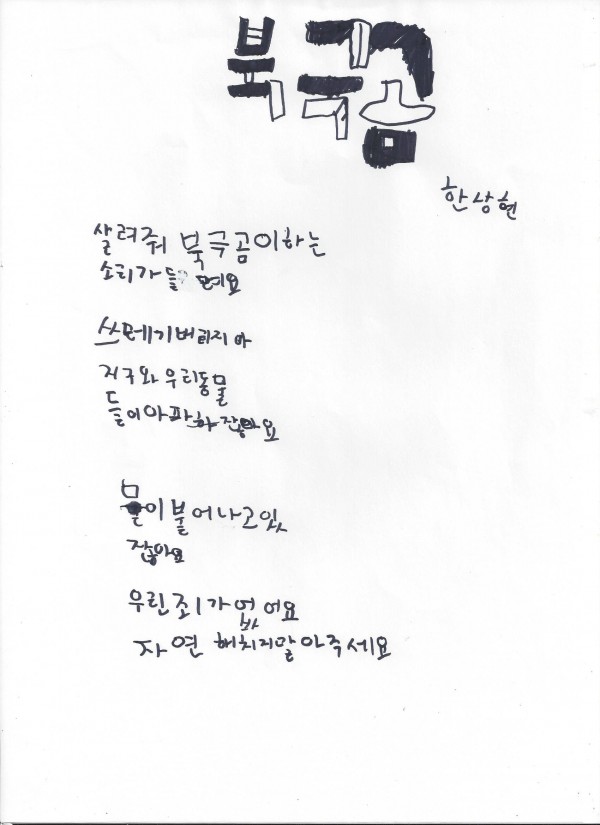 북극곰
한상현
살려줘 북극곰이하는
소리가 들려요
쓰레기버리지 마
지구와 우리동물
들이아파하잖아요
물이 불어나고있
잖아요
우린죄가없어요
자연 해치지말아주세요